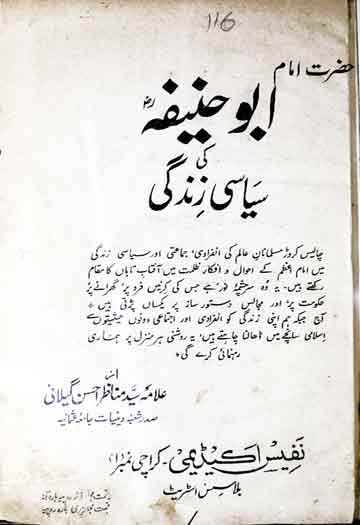 116
حضرت امام
ابو حنیفہ رض
کی
سیاسی زندگی
چالیس کروڑ مسلمانانِ عالم کی انفرادی، جماعتی اور سیاسی زندگی
میں امام اعظم کے احوال و افکار ظلمت میں آفتابِ تاباں کا مقام
رکھتے ہیں۔ یہ وہ سرچشمۂ نور ہے جس کی کرنیں فرد پر، گھرانے پر
حکومت پر، اور مجالسِ دستور ساز پر یکساں پڑتی ہیں
آج جبکہ ہم اپنی زندگی کو انفرادی اور اجتماعی دونوں حیثیتوں سے
اسلامی سانچے میں ڈھالنا چاہتے ہیں، یہ روشنی ہر منزل پر ہماری
رہنمائی کرے گی
از
علامہ سید مناظر احسن گیلانی
صدر شعبہ دینیات جامعہ عثمانیہ
نفیس اکیڈیمی۔ کراچی نمبر (۱)
بلاسس اسٹریٹ